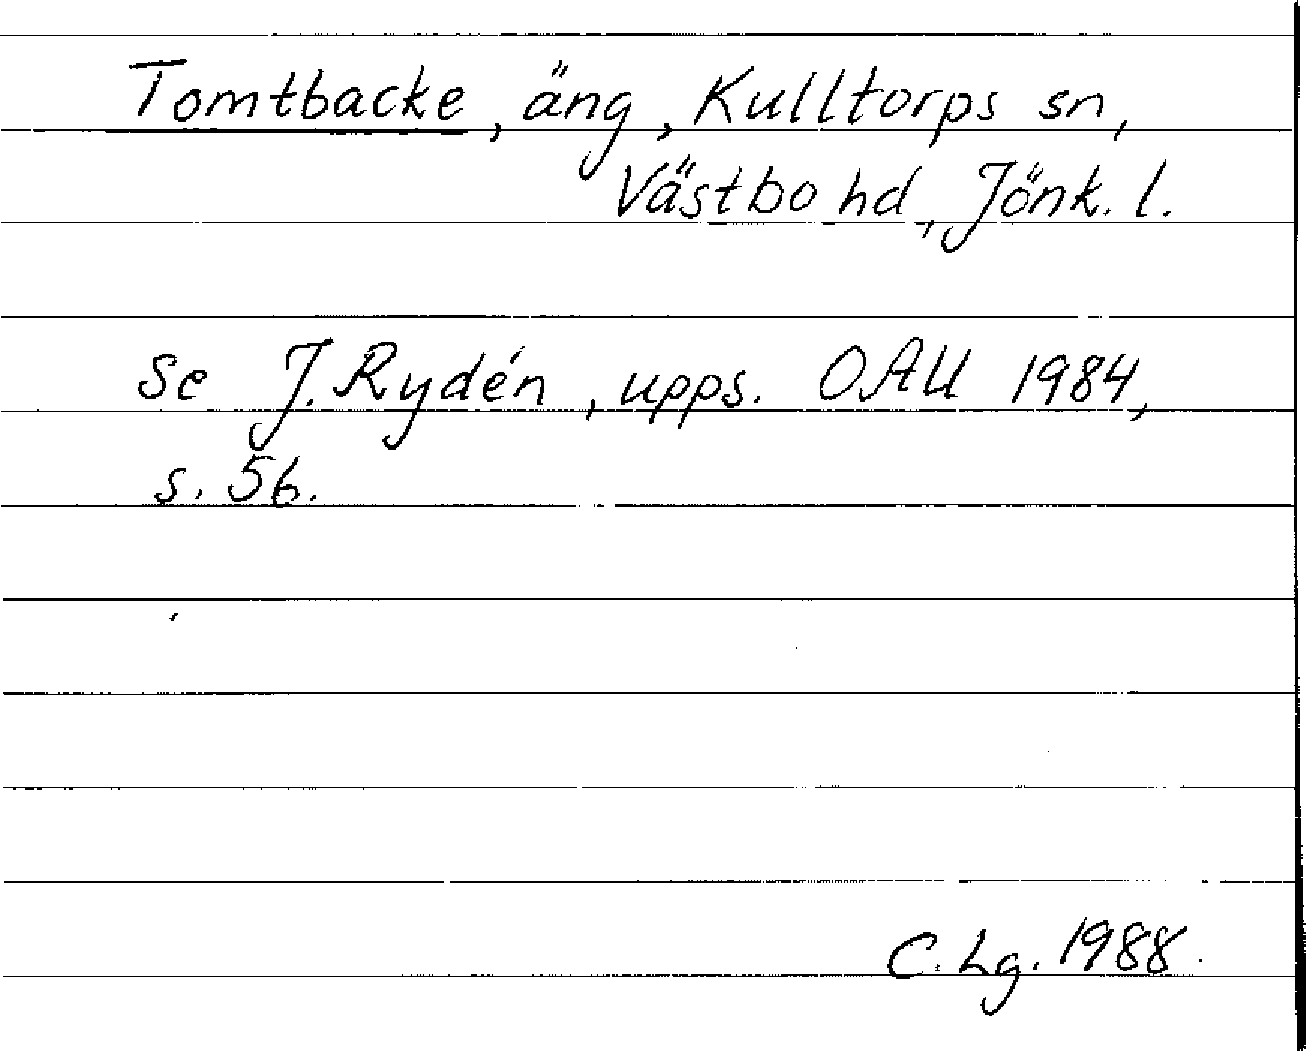 Tomtbacke, äng, Kulltorps sn,
Västbo hd, Jönk. l.
Se J. Rydén, upps. OAU 1984,
s. 56.
C. Lg. 1988.